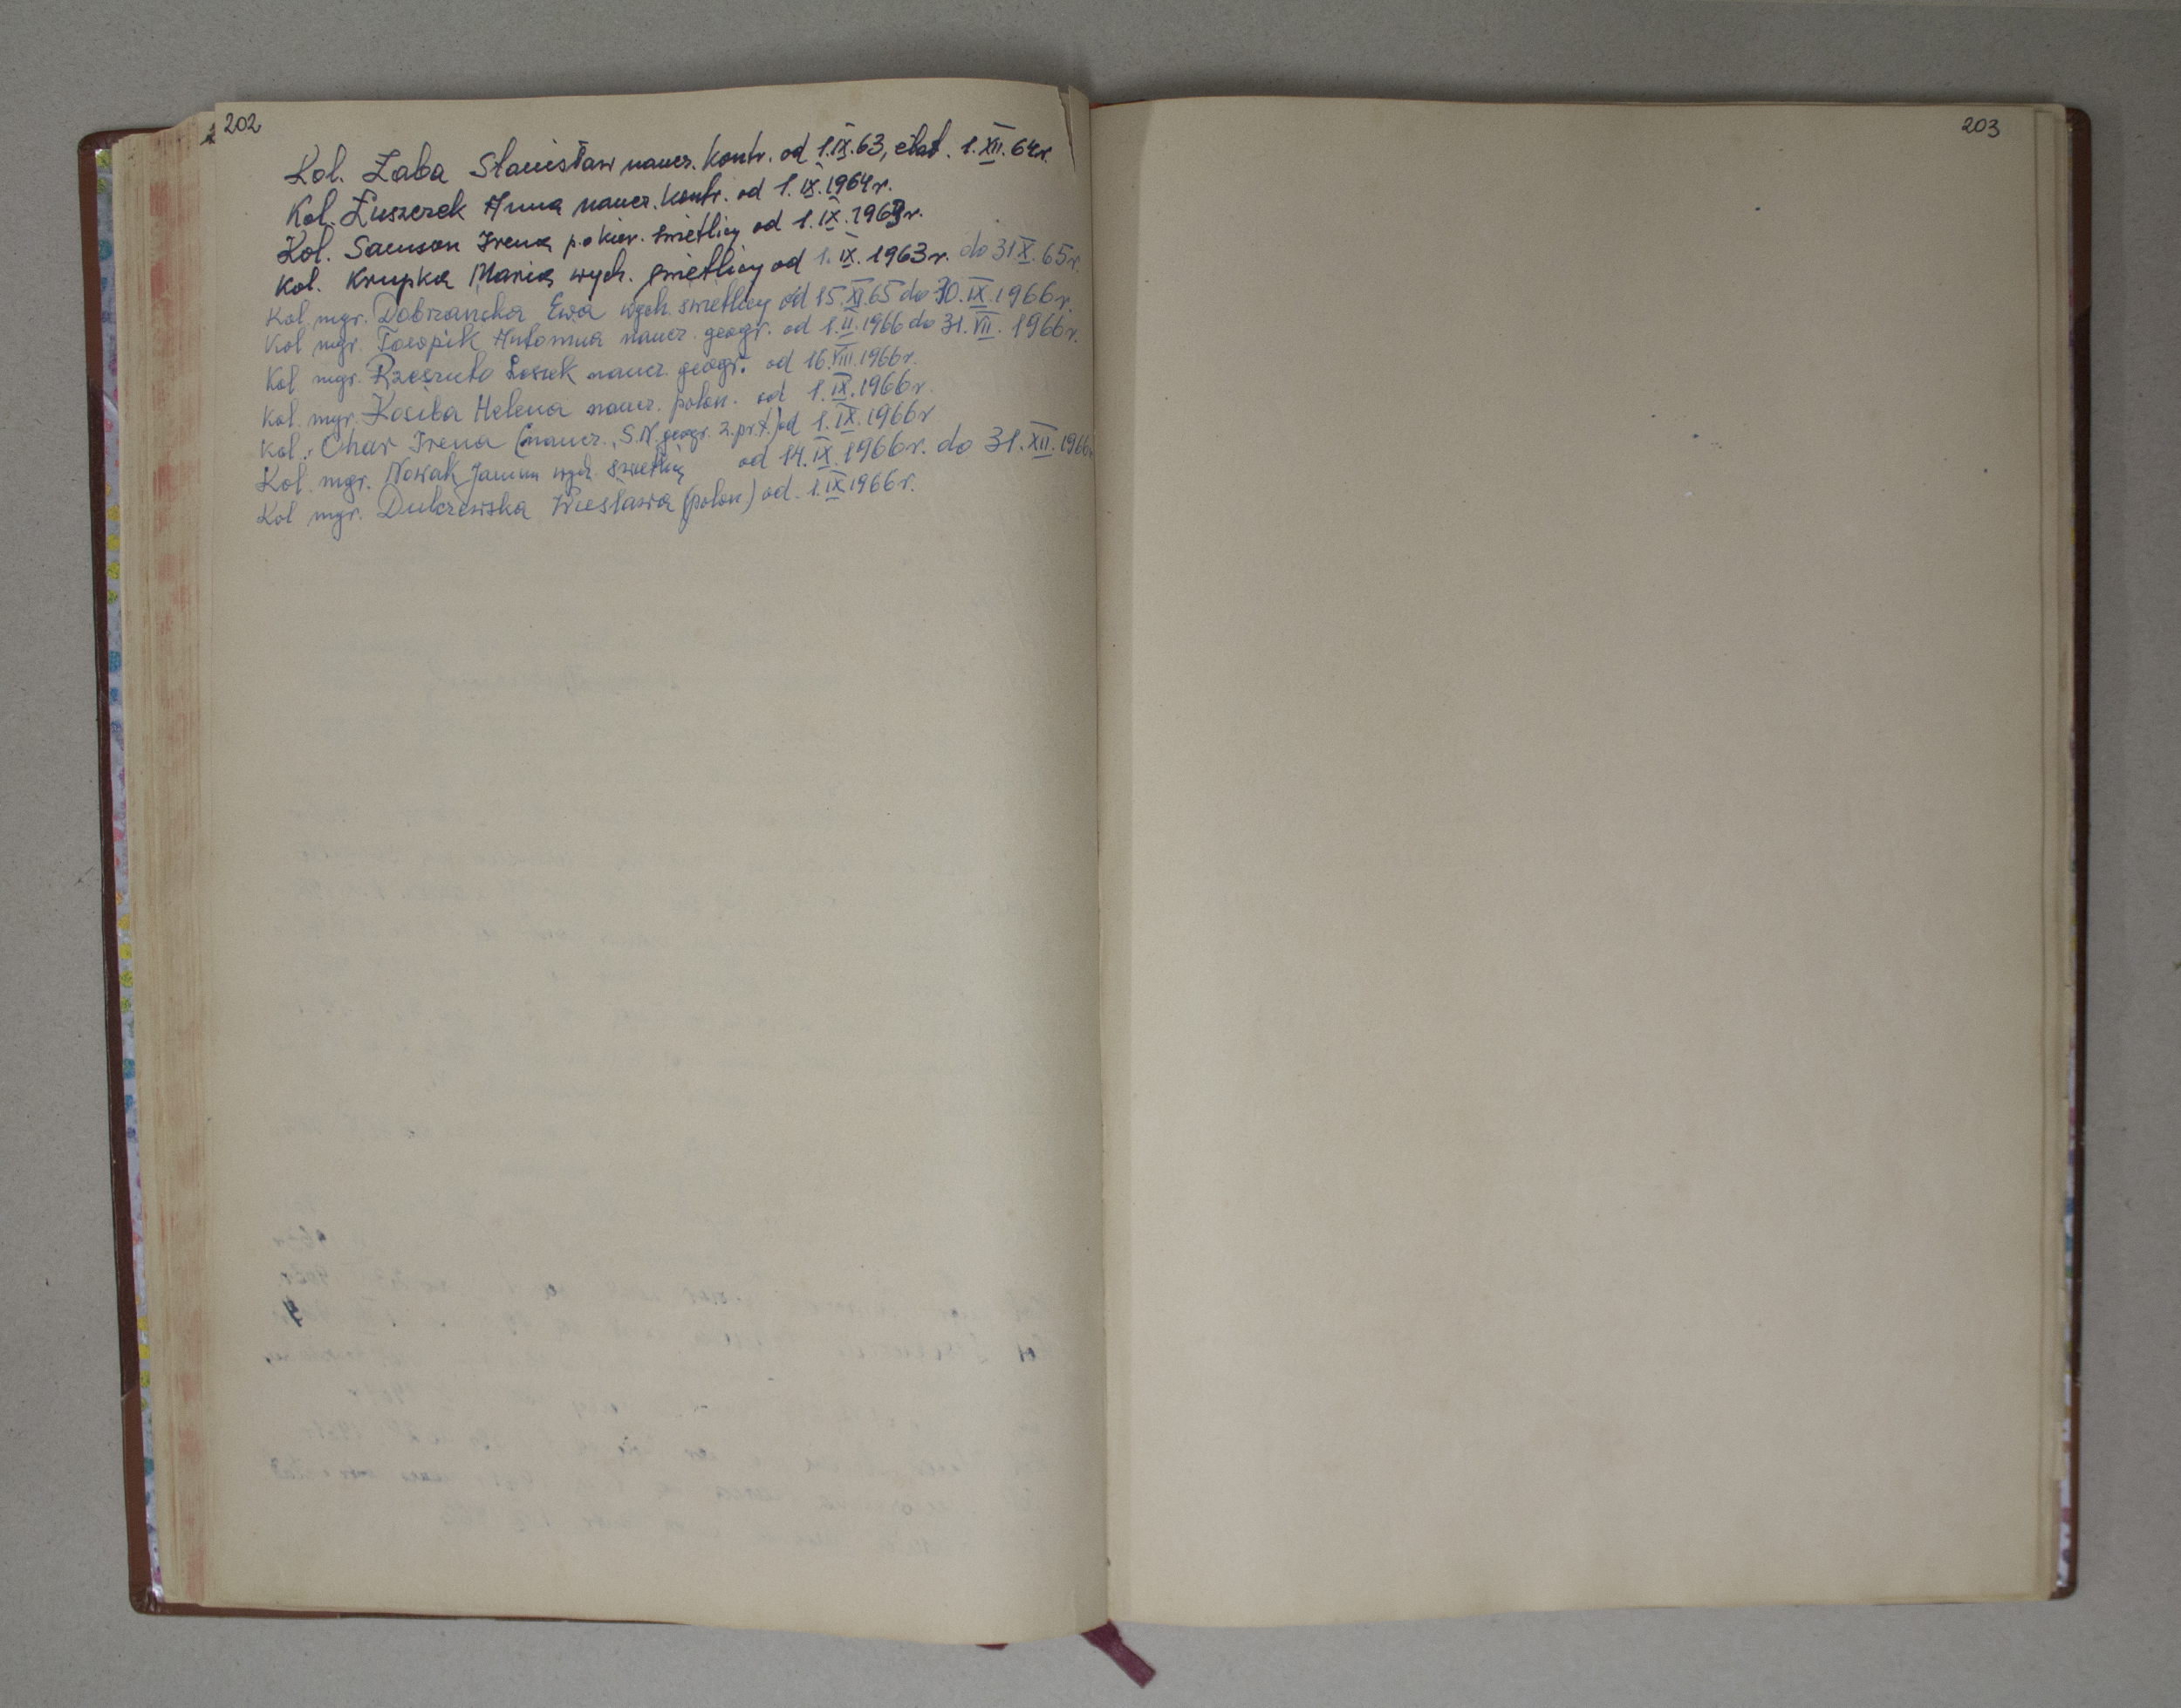 202
Kol. Żaba Stanisław naucz. kontr. od 1.IX.63, etat. 1.XII.64r.
Kol. Łuszczek Anna naucz. kontr. od 1.IX.1964r.
Kol. Samson Irena p.o kier. świetlicy od 1.IX.1963r.
Kol. Krupka Maria wych. świetlicy od 1.IX.1963r. do 31.X.65r.
Kol. mgr. Dobrzańska Ewa wych. świetlicy od 15.XI.65 do 30.IX.1966r.
Kol mgr. Antonina naucz. geogr. od 1.II.1966 do 31.VII.1966r.
Kol mgr. Rzeszuto Leszek naucz. geogr. od 16.VIII.1966r.
Kol. mgr. Kosiba Helena naucz. polon. od 1.IX.1966r.
Kol. Irena (naucz. S.N. geogr. z. pr.t.) od 1.IX.1966r
Kol. mgr. Nowak Janina wych. świetlicy od 14.IX.1966r. do 31.XII.1966r
Kol mgr. Wiesława (polon.) od. 1.IX.1966r.
203